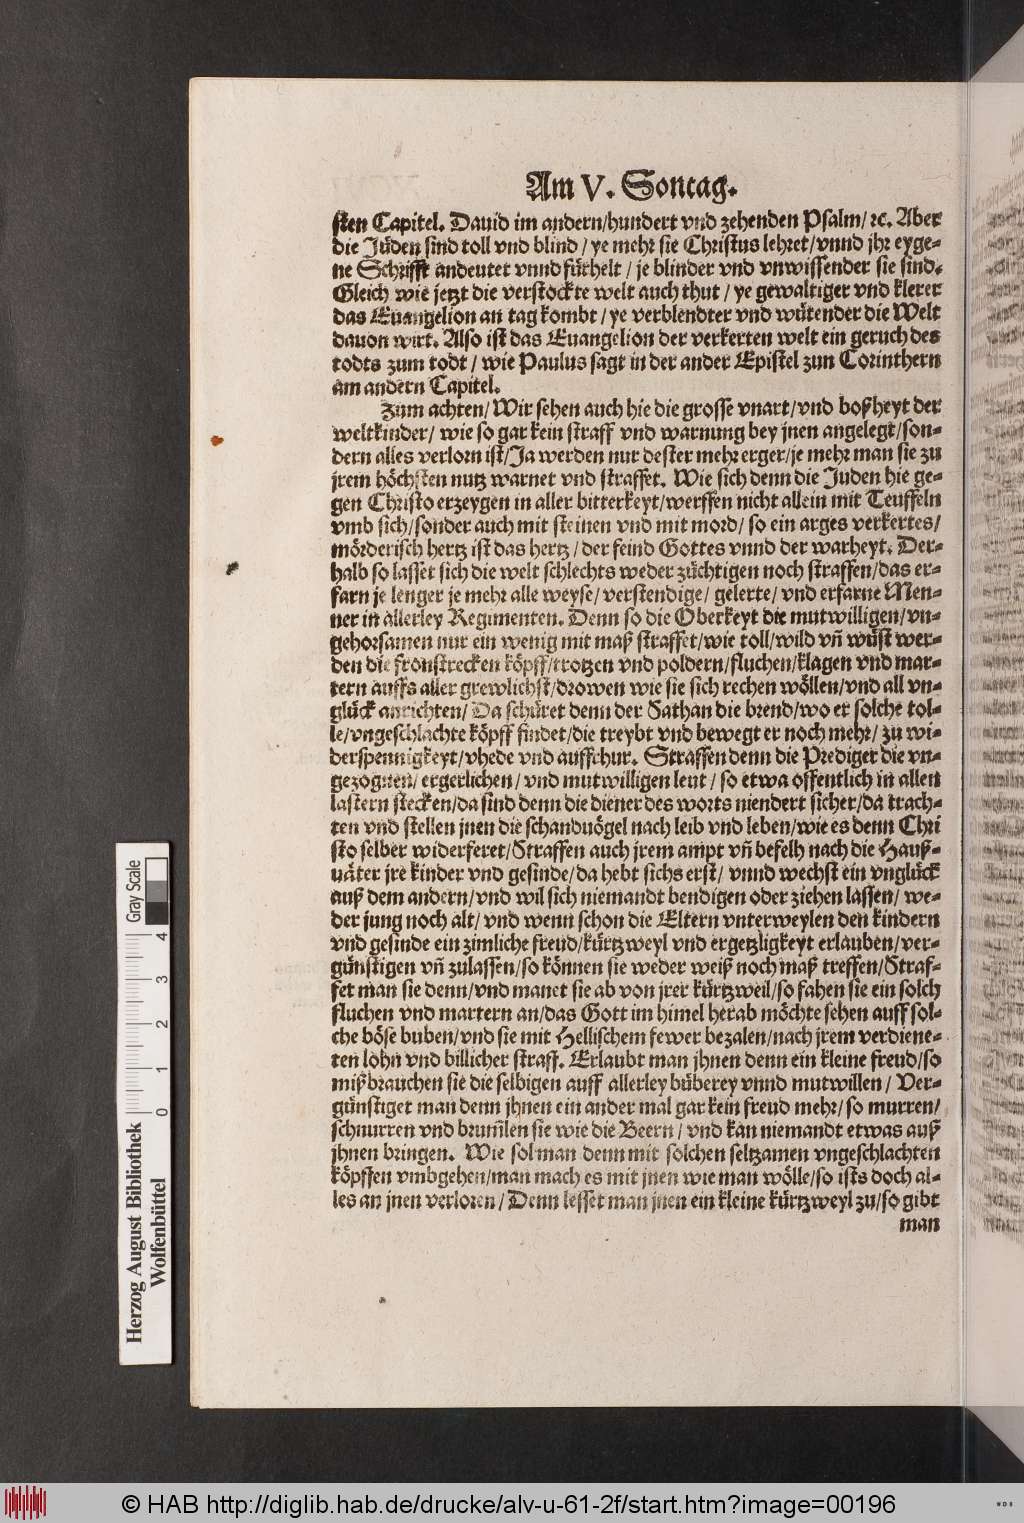 Am V. Sontag.
sten Capitel. Dauid im andern/hundert vnd zehenden Psalm/ ꝛc. Aber
die Jüden sind toll vnd blind / ye mehr sie Christus lehret/vnnd jhr eyge-
ne Schrifft andeutet vnnd fürhelt / je blinder vnd vnwissender sie sind.
Gleich wie jetzt die verstockte welt auch thut / ye gewaltiger vnd klerer
das Euangelion an tag kombt / ye verblendter vnd wütender die Welt
dauon wirt. Also ist das Euangelion der verkerten welt ein geruch des
todts zum todt / wie Paulus sagt in der ander Epistel zun Corinthern
am andern Capitel.
Zum achten/ Wir sehen auch hie die grosse vnart/vnd boßheyt der
weltkinder/ wie so gar kein straff vnd warnung bey jnen angelegt/son-
dern alles verlorn ist/Ja werden nur dester mehr erger/je mehr man sie zu
jrem höchsten nutz warnet vnd straffet. Wie sich denn die Juden hie ge-
gen Christo erzeygen in aller bitterkeyt/werffen nicht allein mit Teuffeln
vmb sich/sonder auch mit steinen vnd mit mord/ so ein arges verkertes/
mörderisch hertz ist das hertz / der feind Gottes vnnd der warheyt. Der-
halb so lasset sich die welt schlechts weder züchtigen noch straffen/das er-
farn je lenger je mehr alle weyse/ verstendige/ gelerte/ vnd erfarne Men-
ner in allerley Regimenten. Denn so die Oberkeyt die mutwilligen/vn-
gehorsamen nur ein wenig mit maß straffet/wie toll/wild vñ wüst wer-
den die fronstrecken köpff/trotzen vnd poldern/fluchen/klagen vnd mar-
tern auffs aller grewlichst/drowen wie sie sich rechen wöllen/vnd all vn-
glück anrichten/ Da schüret denn der Sathan die brend/wo er solche tol-
le/vngeschlachte köpff findet/die treybt vnd bewegt er noch mehr/ zu wi-
derspennigkeyt/vhede vnd auffrhur. Straffen denn die Prediger die vn-
gezognen/ ergerlichen/ vnd mutwilligen leut / so etwa offentlich in allen
lastern stecken/da sind denn die diener des worts niendert sicher/da trach-
ten vnd stellen jnen die schanduögel nach leib vnd leben/wie es denn Chri
sto selber widerferet/Straffen auch jrem ampt vñ befelh nach die Hauß-
uäter jre kinder vnd gesinde/da hebt sichs erst/ vnnd wechst ein vnglück
auß dem andern/vnd wil sich niemandt bendigen oder ziehen lassen/ we-
der jung noch alt/ vnd wenn schon die Eltern vnterweylen den kindern
vnd gesinde ein zimliche freud/kürtzweyl vnd ergetzligkeyt erlauben/ver-
günstigen vñ zulassen/so können sie weder weiß noch maß treffen/Straf-
fet man sie denn/vnd manet sie ab von jrer kürtzweil/so fahen sie ein solch
fluchen vnd martern an/das Gott im himel herab möchte sehen auff sol-
che böse buben/vnd sie mit Hellischem fewer bezalen/nach jrem verdiene-
ten lohn vnd billicher straff. Erlaubt man jhnen denn ein kleine freud/so
mißbrauchen sie die selbigen auff allerley büberey vnnd mutwillen/ Ver-
günstiget man denn jhnen ein ander mal gar kein freud mehr/so murren/
schnurren vnd brum̃len sie wie die Beern/ vnd kan niemandt etwas auß
jhnen bringen. Wie sol man denn mit solchen seltzamen vngeschlachten
köpffen vmbgehen/man mach es mit jnen wie man wölle/so ists doch al-
les an jnen verloren/ Denn lesset man jnen ein kleine kürtzweyl zu/so gibt
man
Herzog August Bibliothek
Wolfenbüttel
0 1 2 3 4
Gray Scale
© HAB http://diglib.hab.de/drucke/alv-u-61-2f/start.htm?image=00196